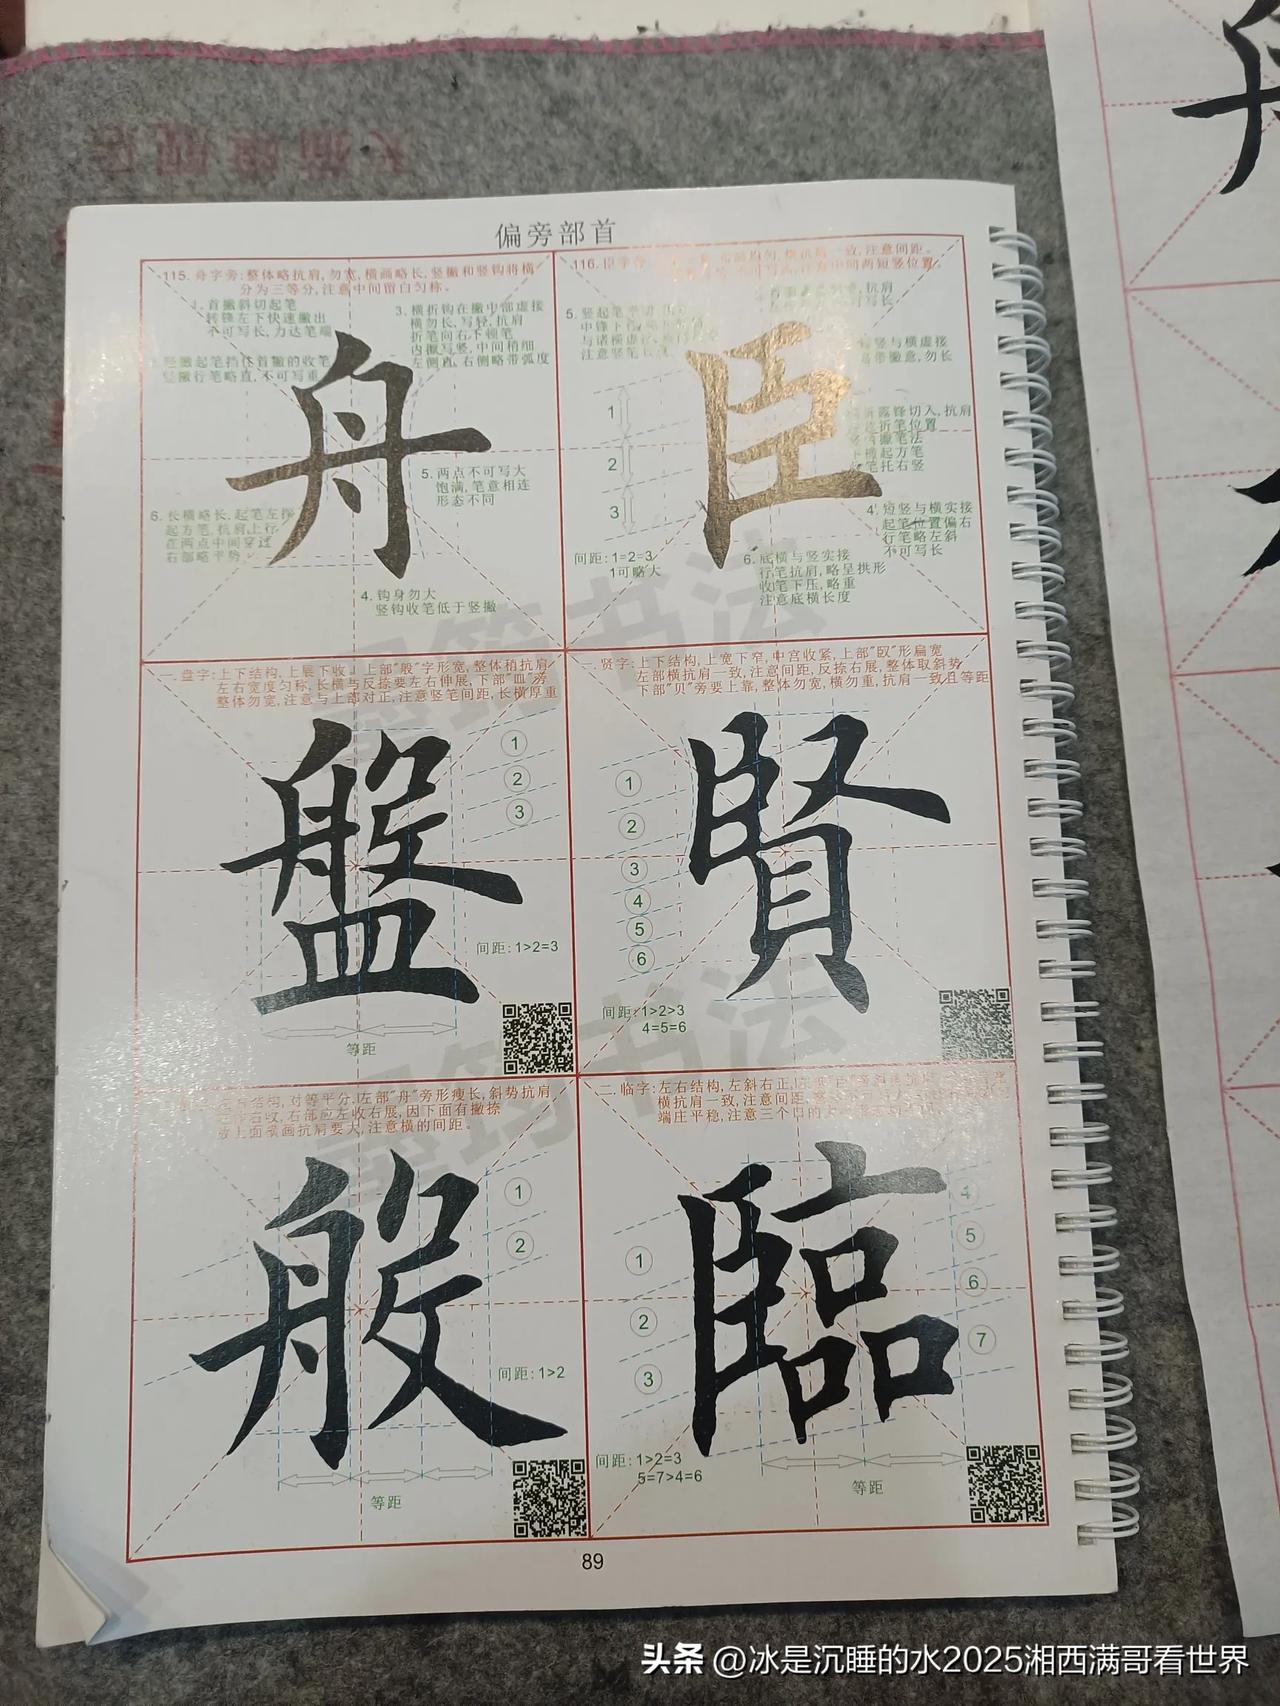 偏旁部首
115. 舟字旁:整体略抗肩,勿宽,横画略长,竖撇和竖钩将横
分为三等分,注意中间留白匀称。
1. 首撇斜切起笔
转锋左下快速撇出
不可写长,力达笔端
竖撇起笔挡住首撇的收笔
竖撇行笔略直,不可写重
3. 横折钩在撇中部虚接
横勿长,写轻,抗肩
折笔向右下顿笔
内擫写竖,中间稍细
左侧直,右侧略带弧度
舟
5. 两点不可写大
饱满,笔意相连
形态不同
6. 长横略长,起笔左探
起方笔,抗肩上行
在两点中间穿过
右部略平势
4. 钩身勿大
竖钩收笔低于竖撇
116. 臣字旁
一致,注意间距。
中间两短竖位置。
5. 竖起笔
中锋下
与诸横虚
注意竖笔
抗肩
写长
竖与横虚接
带撇意,勿长
露锋切入,抗肩
折笔位置
撇笔法
横起方笔
笔托右竖
臣
1
2
3
间距:1=2=3
1可略大
4. 短竖与横实接
起笔位置偏右
行笔略左斜
不可写长
6. 底横与竖实接
行笔抗肩,略呈拱形
收笔下压,略重
注意底横长度
一. 盘字:上下结构,上展下收。上部"般"字形宽,整体稍抗肩
左右宽度匀称,长横与反捺要左右伸展,下部"皿"旁
整体勿宽,注意与上部对正,注意竖笔间距,长横厚重
盤
①
②
③
间距:1>2=3
等距
一. 贤字:上下结构,上宽下窄,中宫收紧,上部"臤"形扁宽
左部横抗肩一致,注意间距,反捺右展,整体取斜势
下部"贝"旁要上靠,整体勿宽,横勿重,抗肩一致且等距
賢
①
②
③
④
⑤
⑥
间距:1>2>3
4=5=6
结构,对等平分,左部"舟"旁形瘦长,斜势抗肩
右收,右部应左收右展,因下面有撇捺
故上面横画抗肩要大,注意横的间距。
般
①
②
间距:1>2
等距
二. 临字:左右结构,左斜右正,左
横抗肩一致,注意间距,
端庄平稳,注意三个口的大
臨
①
②
③
④
⑤
⑥
⑦
间距:1>2=3
5=7>4=6
等距
89
墨筠书法
墨筠书法
头条 @冰是沉睡的水2025湘西满哥看世界